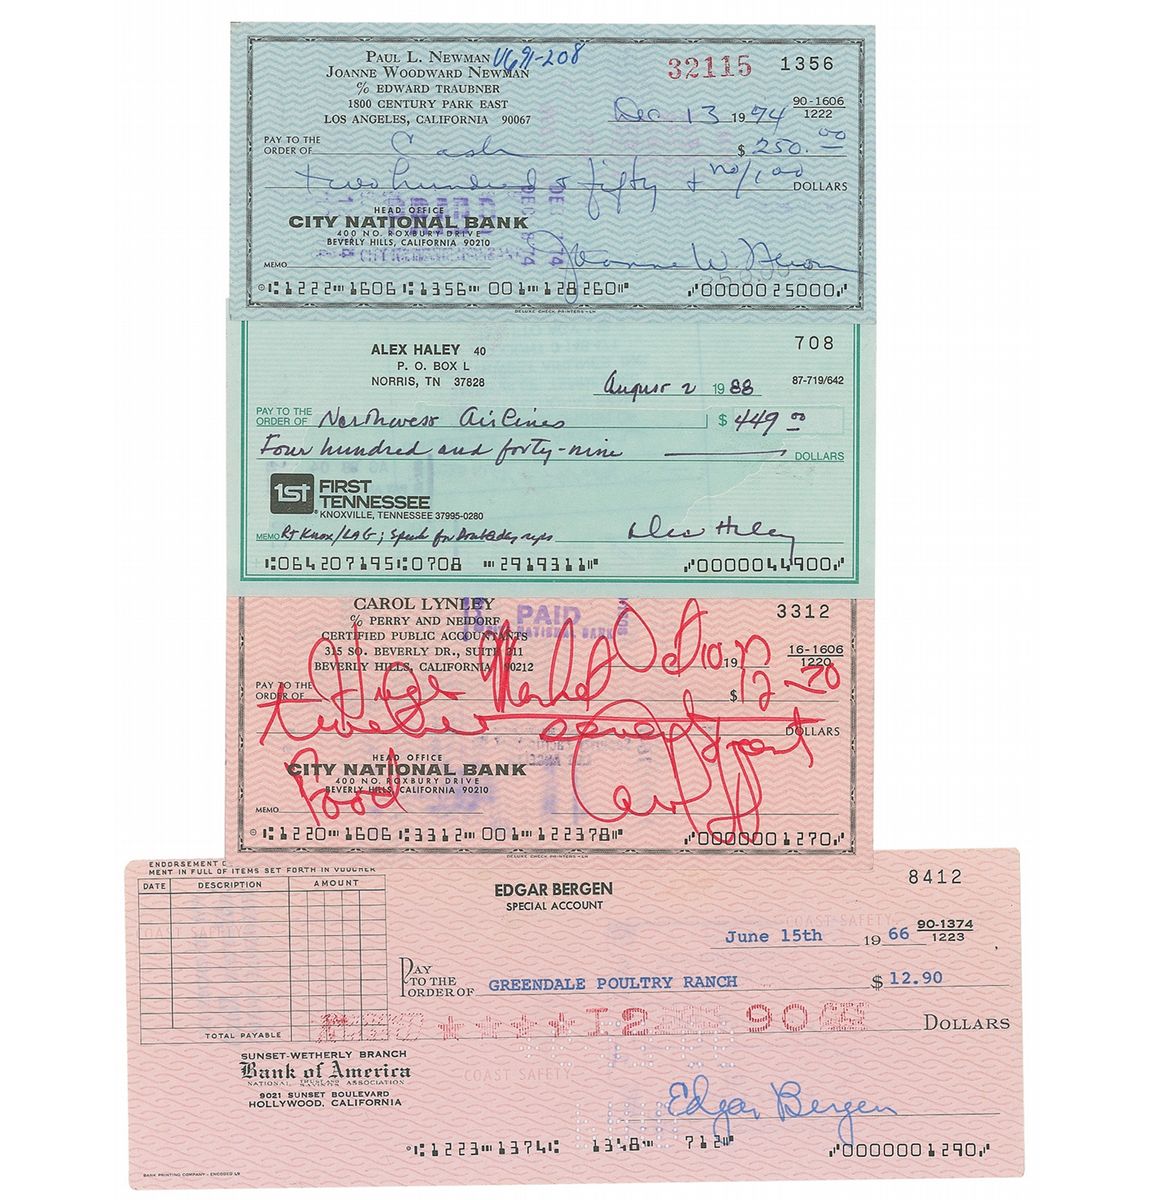 PAUL L. NEWMAN V691-208
JOANNE WOODWARD NEWMAN
% EDWARD TRAUBNER
1800 CENTURY PARK EAST
LOS ANGELES, CALIFORNIA 90067
32115 1356
Dec 13 1974
90-1606
1222
PAY TO THE
ORDER OF Cash $ 250.00
two hundred & fifty & no/100 DOLLARS
HEAD OFFICE
CITY NATIONAL BANK
400 NO. ROXBURY DRIVE
BEVERLY HILLS, CALIFORNIA 90210
MEMO Joanne W. Newman
1222 1606 1356 001 128260 0000025000
DELUXE CHECK PRINTERS - LH
ALEX HALEY 40
P. O. BOX L
NORRIS, TN 37828
708
August 2 1988 87-719/642
PAY TO THE
ORDER OF Northwest Airlines $ 449.00
Four hundred and forty-nine DOLLARS
1st FIRST
TENNESSEE
KNOXVILLE, TENNESSEE 37995-0280
MEMO RT Knox/LAG; Speak for Alex Haley
064207195 0708 2919311 0000044900
CAROL LYNLEY
% PERRY AND NEIDORF
CERTIFIED PUBLIC ACCOUNTANTS
315 SO. BEVERLY DR., SUITE 211
BEVERLY HILLS, CALIFORNIA 90212
PAID
3312
19
16-1606
1220
PAY TO THE
ORDER OF Market $ 12.70
twelve seventy DOLLARS
HEAD OFFICE
CITY NATIONAL BANK
400 NO. ROXBURY DRIVE
BEVERLY HILLS, CALIFORNIA 90210
MEMO Food
1220 1606 3312 001 122378 0000001270
DELUXE CHECK PRINTERS - LH
ENDORSEMENT
MENT IN FULL OF ITEMS SET FORTH IN VOUCHER
DATE DESCRIPTION AMOUNT
TOTAL PAYABLE
EDGAR BERGEN
SPECIAL ACCOUNT
8412
COAST SAFETY
June 15th 1966 90-1374
1223
PAY
TO THE
ORDER OF GREENDALE POULTRY RANCH $ 12.90
****12 90 DOLLARS
SUNSET-WETHERLY BRANCH
Bank of America
NATIONAL TRUST AND SAVINGS ASSOCIATION
9021 SUNSET BOULEVARD
HOLLYWOOD, CALIFORNIA
COAST SAFETY
Edgar Bergen
1223 1374 1348 712 0000001290
BANK PRINTING COMPANY - ENCODED LS